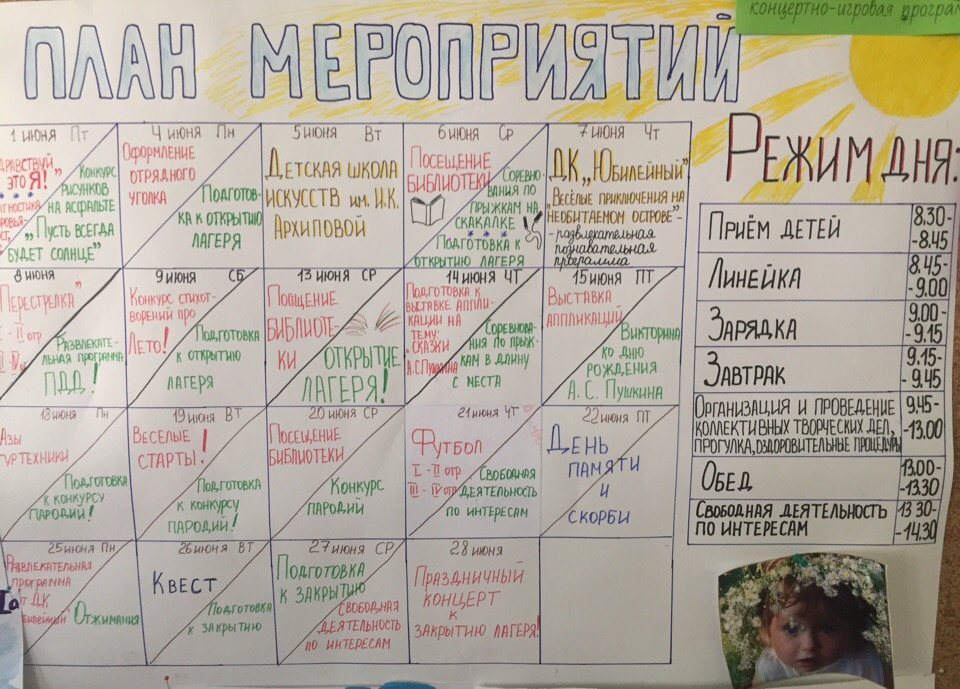 концертно-игровая програм
ПЛАН МЕРОПРИЯТИЙ
1 июня Пт
это Я!"
Конкурс
рисунков
на асфальте
„Пусть всегда
будет солнце"
4 июня Пн
Оформление
отрядного
уголка
Подготов-
ка к открытию
лагеря
5 июня Вт
Детская школа
искусств им. И.К.
Архиповой
6 июня Ср
Посещение
библиотеки
Соревно-
вания по
прыжкам на
скакалке
Подготовка к
открытию лагеря
7 июня Чт
ДК „Юбилейный"
„Весёлые приключения на
необитаемом острове"-
- развлекательная
познавательная
программа
8 июня
Перестрелка"
I - II отр
Развлекате-
льная программа
ПДД!
9 июня Сб
Конкурс стихот-
ворений про
Лето!
Подготовка
к открытию
лагеря
13 июня СР
Посищение
библиоте-
ки
Открытие
лагеря!
14 июня ЧТ
Подготовка к
выставке аппли-
кации на
тему:
„Сказки
А.С.Пушкина
Соревнова-
ния по прыж-
кам в длину
с места
15 июня ПТ
Выставка
аппликаций
Викторина
ко дню
рождения
А. С. Пушкина
18 июня Пн
Азы
туртехники
Подготовка
к конкурсу
пародий!
19 июня ВТ
Веселые
старты!
Подготовка
к конкурсу
пародий!
20 июня СР
Посещение
библиотеки
Конкурс
пародий
21 июня ЧТ
Футбол
I - II отр.
III - IV отр
Свободная
деятельность
по интересам
22 июня ПТ
День
памяти
и
скорби
25 июня Пн
Развлекательная
программа
от ДК
Отжимания
26 июня ВТ
Квест
Подготовка
к закрытию
27 июня СР
Подготовка
к закрытию
Свободная
деятельность
по интересам
28 июня
Праздничный
концерт
к
закрытию лагеря!
Режим дня:
Приём детей 8.30-
-8.45
Линейка 8.45-
-9.00
Зарядка 9.00-
-9.15
Завтрак 9.15-
-9.45
Организация и проведение
коллективных творческих дел,
прогулка, оздоровительные процедуры
9.45-
-13.00
Обед 13.00-
-13.30
Свободная деятельность
по интересам
13 30-
-14.30